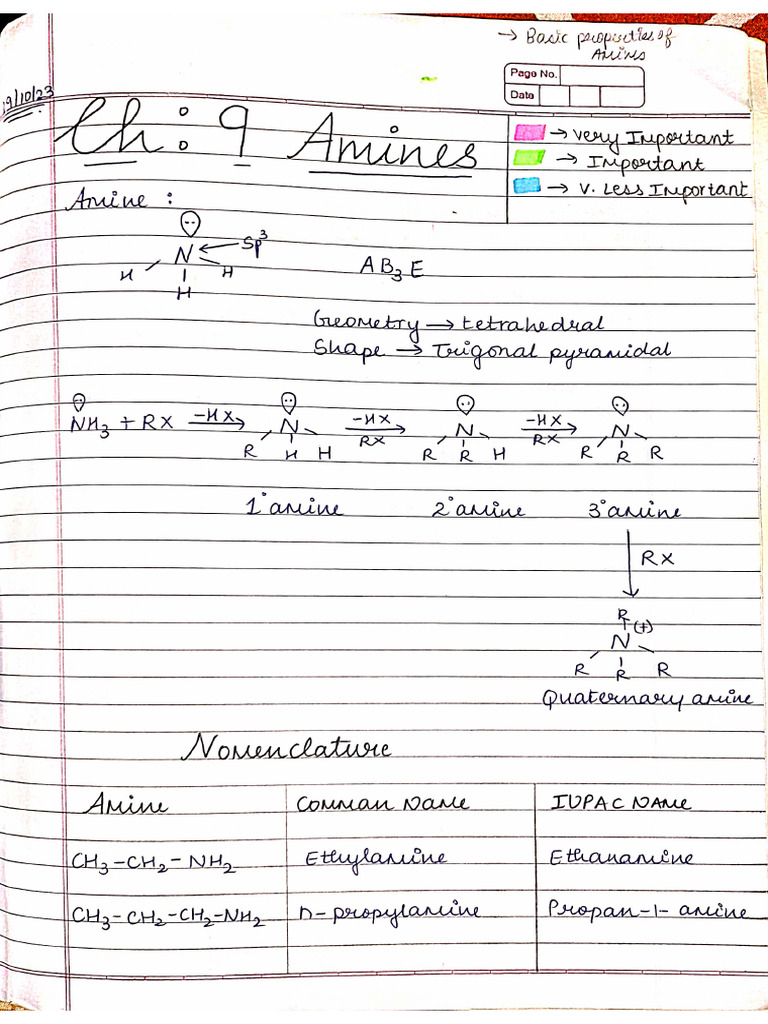 → Basic properties of
Amines
Page No.
Date
19/10/23
Ch: 9 Amines
→ Very Important
→ Important
→ V. Less Important
Amine :
N ← Sp³
H H
H
AB₃E
Geometry → tetrahedral
Shape → Trigonal pyramidal
NH₃ + RX —-HX→ N —-HX/RX→ N —-HX/RX→ N
R H H R R H R R R
1° amine 2° amine 3° amine
RX
R
N (+)
R R R
Quaternary amine
Nomenclature
Amine Comman Name IUPAC Name
CH₃-CH₂-NH₂ Ethylamine Ethanamine
CH₃-CH₂-CH₂-NH₂ n-propylamine Propan-1-amine